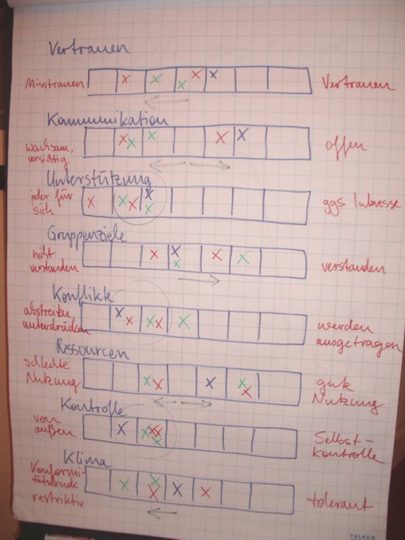 Vertrauen
Misstrauen Vertrauen
Kommunikation
wachsam, offen
vorsichtig
Unterstützung
jeder für ggs Interesse
sich
Gruppenziele
nicht verstanden
verstanden
Konflikte
abstreiten, werden
unterdrücken ausgetragen
Ressourcen
schlechte gute
Nutzung Nutzung
Kontrolle
von Selbst-
außen kontrolle
Klima
Konformi-
tätsdruck tolerant
restriktiv
FALKEN